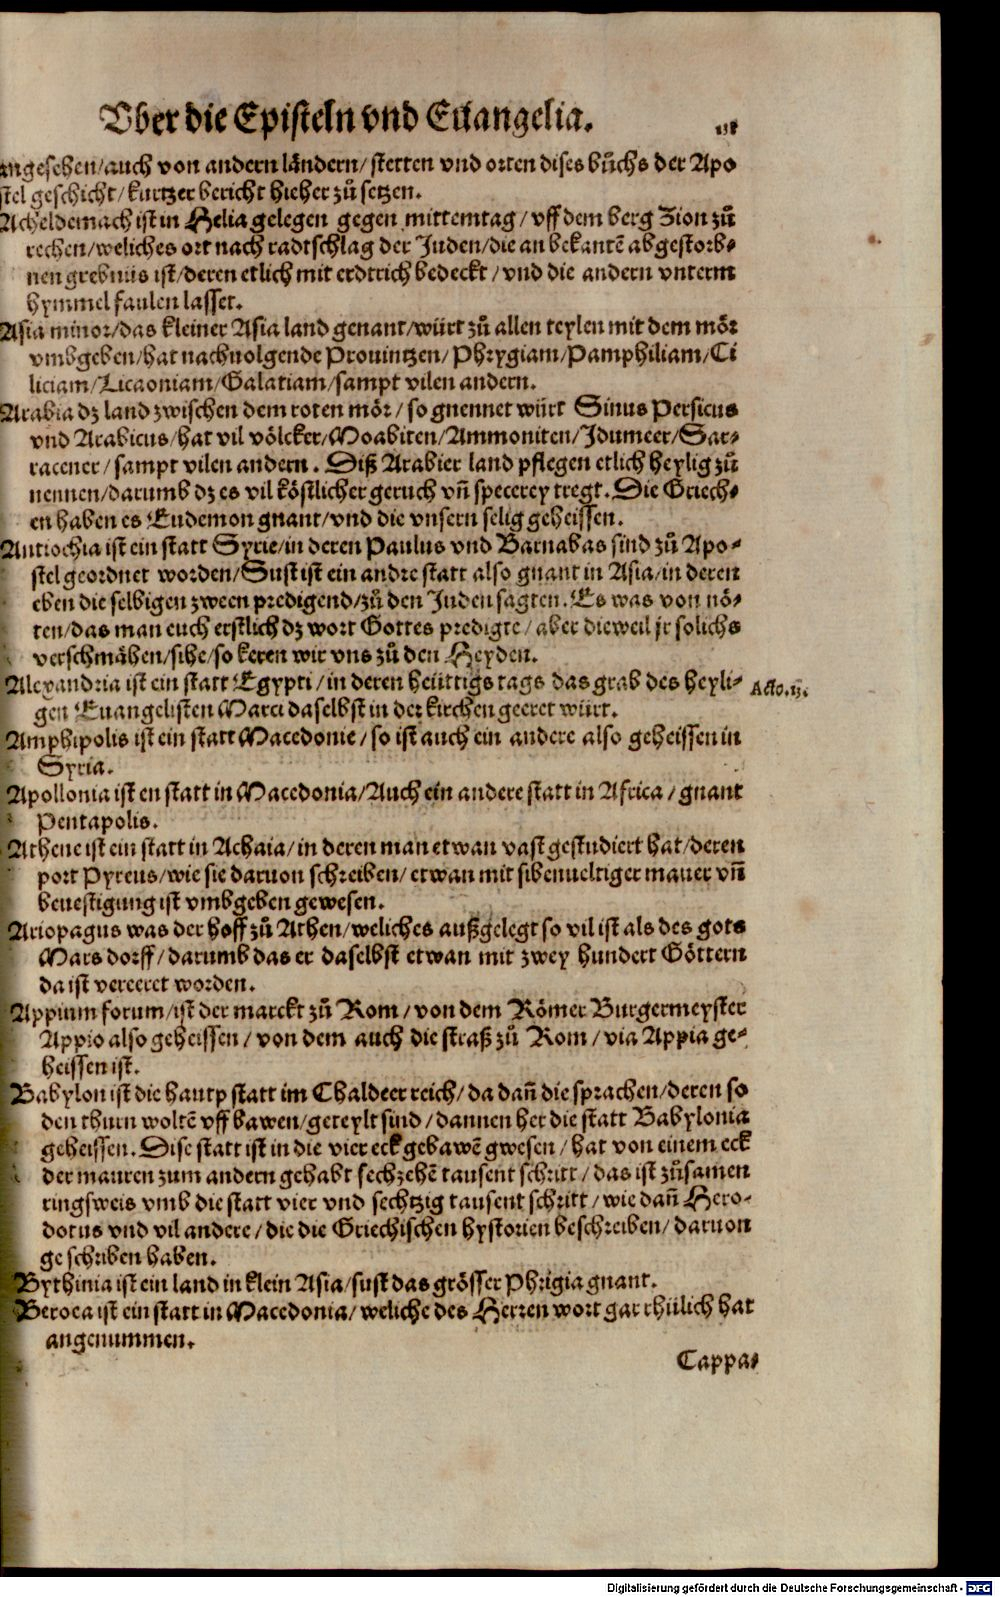 Vber die Episteln vnd Euangelia.
angesehen/auch von andern ländern/stetten vnd orten dises bůchs der Apo
stel geschicht/kurtzer bericht hieher zů setzen.
Acheldemach ist in Helia gelegen gegen mittemtag/vff dem berg Zion zů
rechen/weliches ort nach radtschlag der Juden/die an bekantē abgestorb-
nen grebnüs ist/deren etlich mit erdtrich bedeckt/vnd die andern vnterm
hymmel faulen lasset.
Asia minor/das kleiner Asia land genant/würt zů allen teylen mit dem mör
vmbgeben/hat nachuolgende Prouintzen/Phrygiam/Pamphiliam/Ci
liciam/Licaoniam/Galatiam/sampt vilen andern.
Arabia dz land zwischen dem roten mör/so gnennet würt Sinus Persicus
vnd Arabicus/hat vil völcker/Moabiten/Ammoniten/Idumeer/Sar-
racener/sampt vilen andern. Diß Arabier land pflegen etlich heylig zů
nennen/darumb dz es vil köstlicher geruch vn̄ specerey tregt. Die Griech-
en haben es Eudemon gnant/vnd die vnsern selig geheissen.
Antiochia ist ein statt Syrie/in deren Paulus vnd Barnabas sind zů Apo-
stel geordnet worden/Sust ist ein andre statt also gnant in Asia/in deren
eben die selbigen zween predigend/zů den Juden sagten. Es was von nö-
ten/das man euch erstlich dz wort Gottes predigte/aber dieweil jr solichs
verschmähen/sihe/so keren wir vns zů den Heyden.
Alexandria ist ein statt Egypti/in deren heüttigs tags das grab des heyli-
gen Euangelisten Marci daselbst in der kirchen geeret würt.
Amphipolis ist ein statt Macedonie/so ist auch ein andere also geheissen in
Syria.
Apollonia ist en statt in Macedonia/Auch ein andere statt in Africa/gnant
Pentapolis.
Athene ist ein statt in Achaia/in deren man etwan vast gestudiert hat/deren
port Pyreus/wie sie daruon schreiben/etwan mit sibenueltiger mauer vn̄
beuestigung ist vmbgeben gewesen.
Ariopagus was der hoff zů Athen/weliches außgelegt so vil ist als des gots
Mars dorff/darumb das er daselbst etwan mit zwey hundert Göttern
da ist vereeret worden.
Appium forum/ist der marckt zů Rom/von dem Römer Burgermeyster
Appio also geheissen/von dem auch die straß zů Rom/via Appia ge-
heissen ist.
Babylon ist die haupt statt im Chaldeer reich/da dan̄ die sprachen/deren so
den thurn woltē vff bawen/geteylt sind/dannen her die statt Babylonia
geheissen. Dise statt ist in die vier eck gebawē gwesen/hat von einem eck
der mauren zum andern gehabt sechzehē tausent schritt/das ist zůsamen
ringsweis vmb die statt vier vnd sechtzig tausent schritt/wie dan̄ Hero-
dotus vnd vil andere/die die Griechischen hystorien beschreiben/daruon
geschriben haben.
Bythinia ist ein land in klein Asia/sust das grösser Phrigia gnant.
Beroea ist ein statt in Macedonia/weliche des Herren wort gar thülich hat
angenummen.
Cappa-
Digitalisierung gefördert durch die Deutsche Forschungsgemeinschaft - DFG